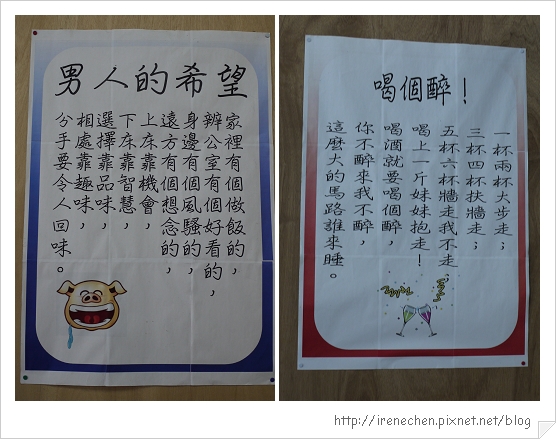 男人的希望
家裡有個做飯的,
辦公室有個好看的,
身邊有個風騷的,
遠方有個想念的,
上床靠機會,
下床靠智慧,
選擇靠品味,
相處靠趣味,
分手要令人回味。
喝個醉!
一杯兩杯大步走;
三杯四杯扶牆走;
五杯六杯牆走我不走,
喝上一斤妹妹抱走!
喝酒就要喝個醉,
你不醉來我不醉,
這麼大的馬路誰來睡。
http://irenechen.pixnet.net/blog